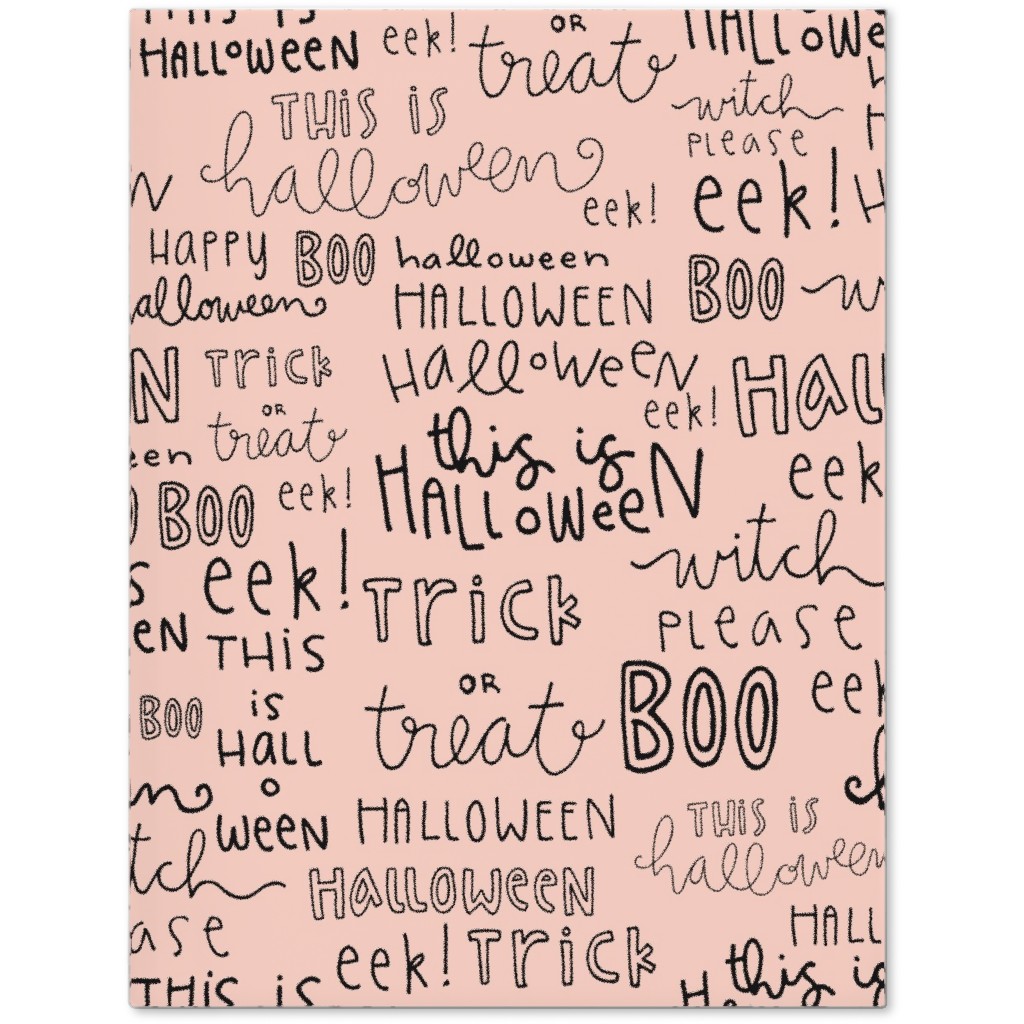 THIS IS
HALLOWEEN
eek!
OR
treat
HALLOWE
THIS IS
halloween
witch
PLEASE
eek!
eek!
N
H
HAPPY
BOO
halloween
alloween
HALLOWEEN
BOO
w
N
TRICK
HALLOWEEN
eek!
HAL
OR
treat
een
this is
HALLOWEEN
eek
BOO
eek!
witch
PLEASE
S
eek!
TRICK
EN
THIS
is
HALL
O
WEEN
BOO
OR
treat
BOO
eek
n
HALLOWEEN
THIS IS
halloween
tch
HALLOWEEN
ase
HALL
THIS IS
eek!
TRICK
this is
H